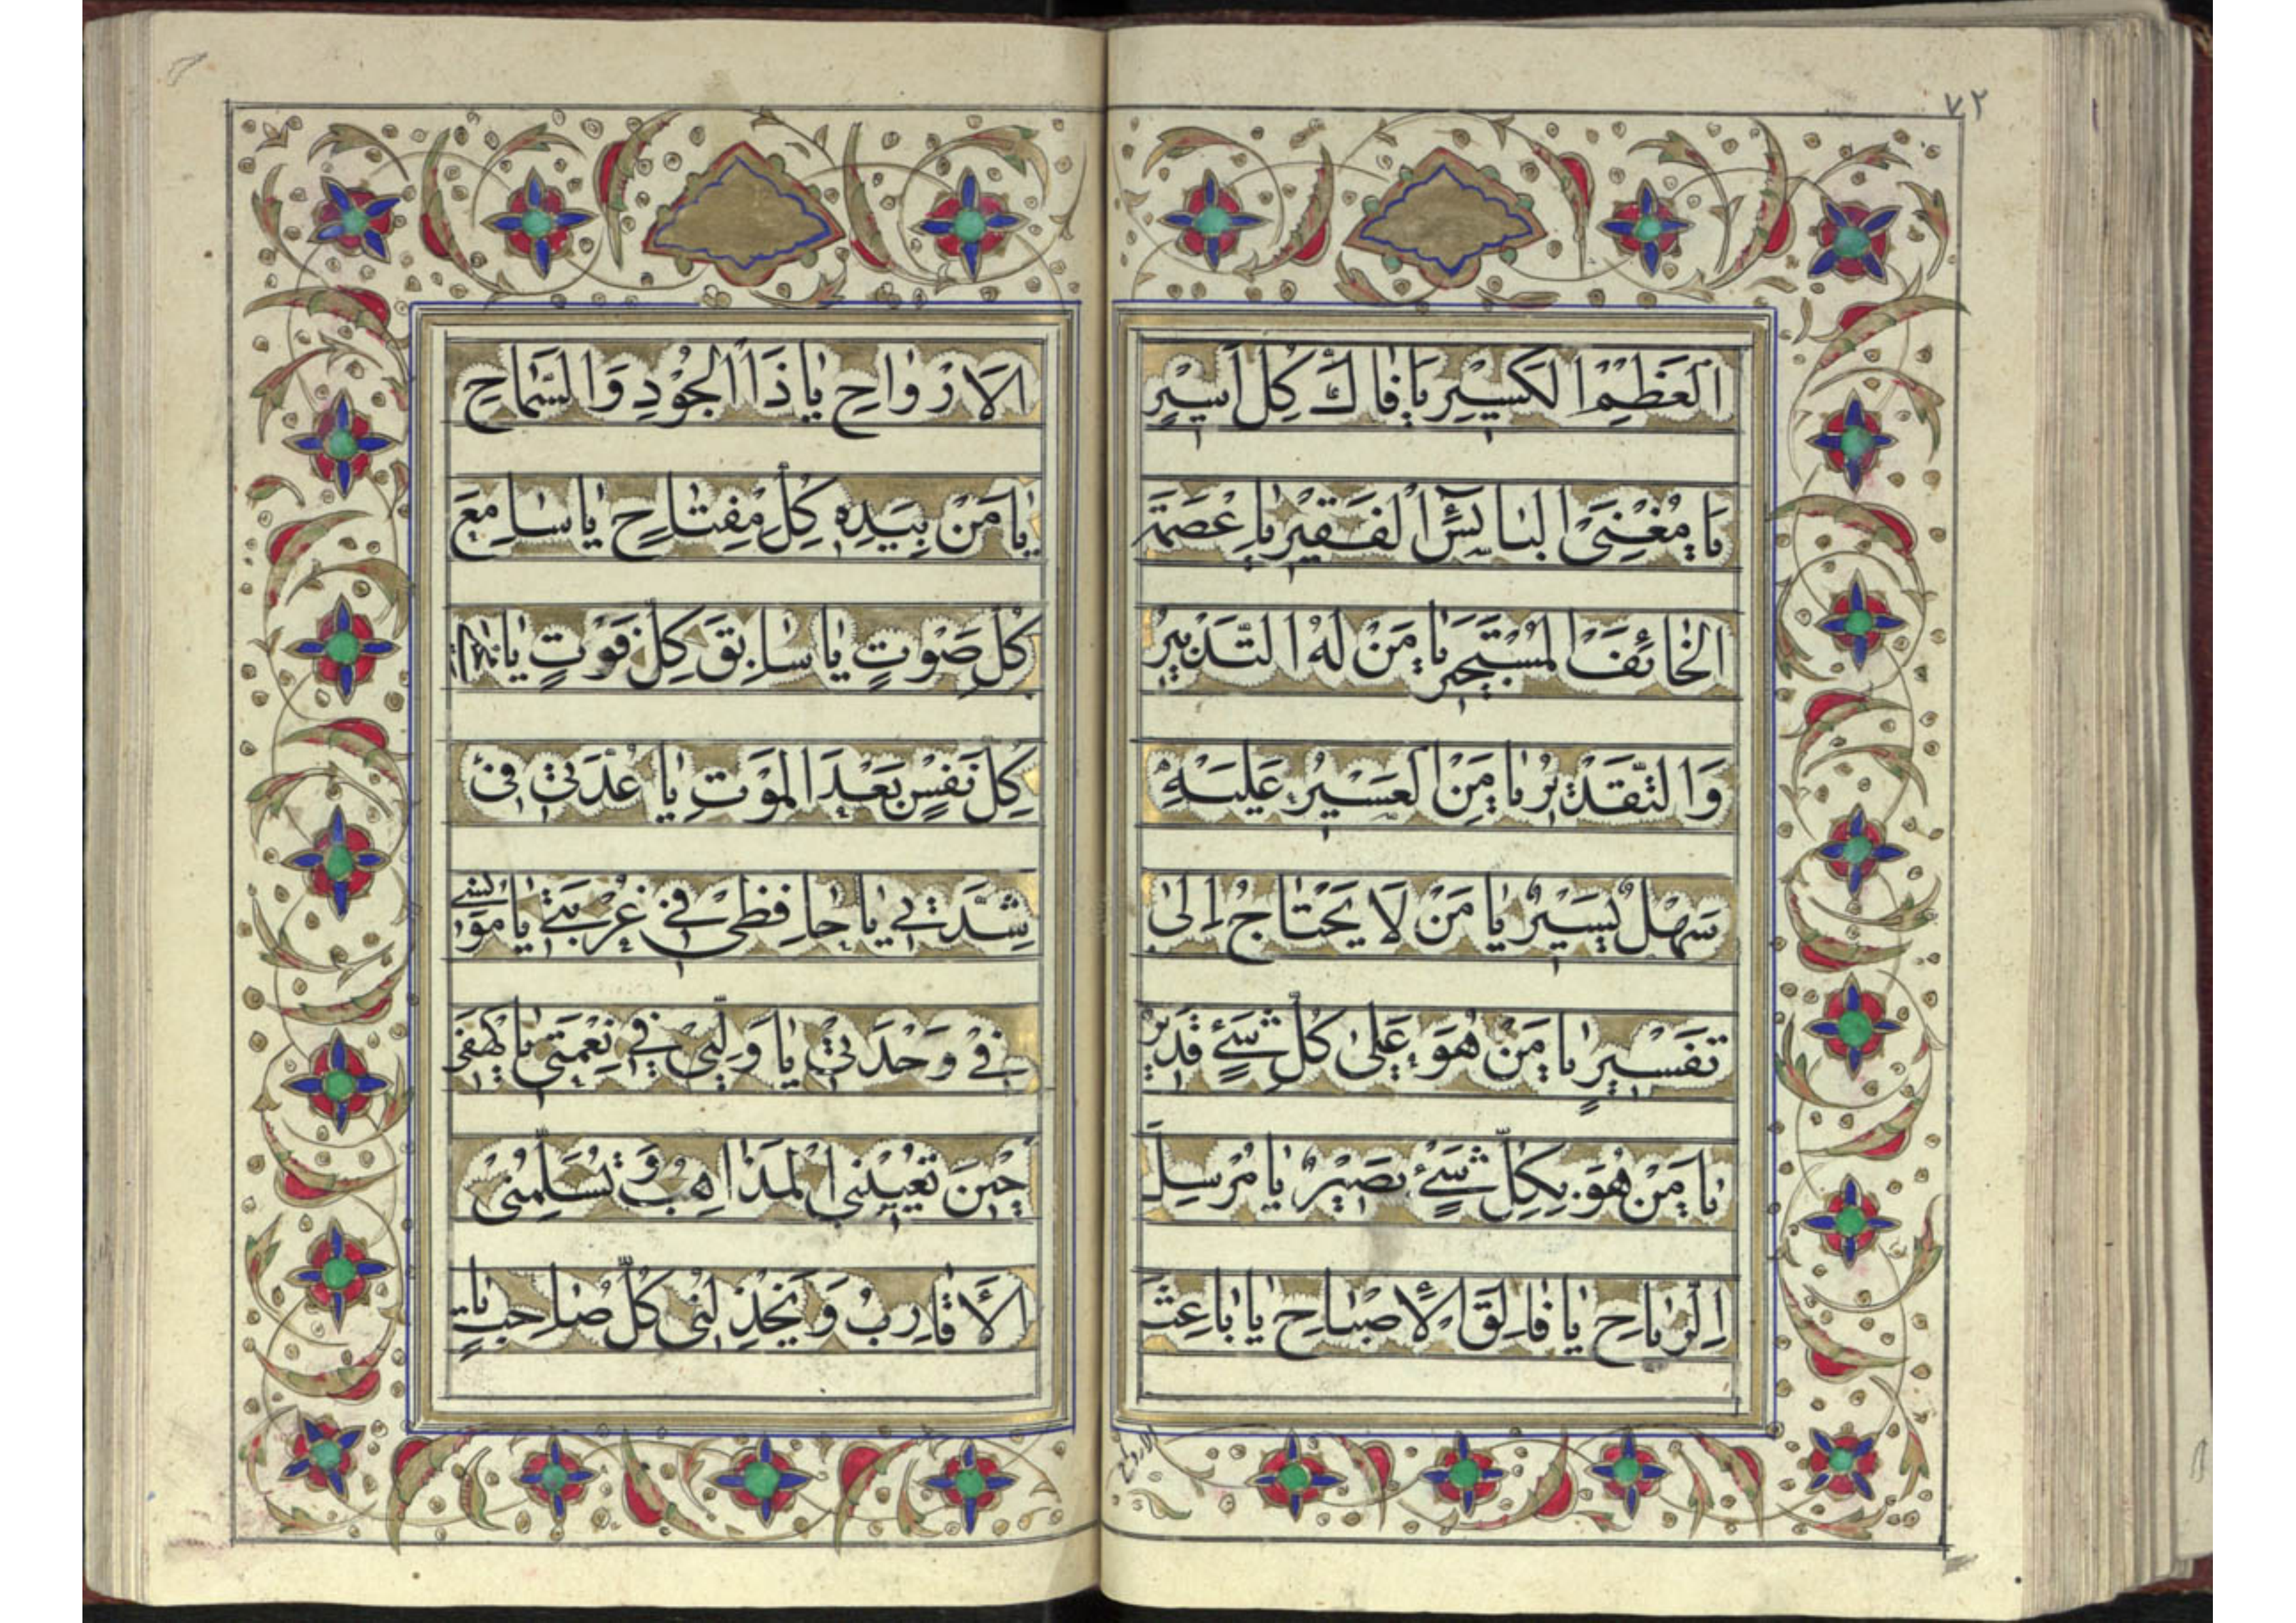 ٧٢
العَظْمِ الكَسِيْرِ يَا فَاكَّ كُلِّ اَسِيْرٍ
يَا مُغْنِيَ البَائِسِ الفَقِيْرِ يَا عِصْمَةَ
الخَائِفِ المُسْتَجِيرِ يَا مَنْ لَهُ التَّدْبِيرُ
وَالتَّقْدِيرُ يَا مَنِ العَسِيْرُ عَلَيْهِ
سَهْلٌ يَسِيْرٌ يَا مَنْ لَا يَحْتَاجُ اِلىٰ
تَفْسِيرٍ يَا مَنْ هُوَ عَلىٰ كُلِّ شَيْءٍ قَدِيرٌ
يَا مَنْ هُوَ بِكُلِّ شَيْءٍ بَصِيْرٌ يَا مُرْسِلَ
الرِّيَاحِ يَا فَالِقَ الْاِصْبَاحِ يَا بَاعِثَ
الارواح
الاَرْوَاحِ يَا ذَا الجُوْدِ وَالسَّمَاحِ
يَا مَنْ بِيَدِهِ كُلُّ مِفْتَاحٍ يَا سَامِعَ
كُلِّ صَوْتٍ يَا سَابِقَ كُلِّ فَوْتٍ يَا
كُلِّ نَفْسٍ بَعْدَ المَوْتِ يَا عُدَّتِيْ فِيْ
شِدَّتِي يَا حَافِظِيْ فِي غُرْبَتِيْ يَا مُونِسِي
فِيْ وَحْدَتِيْ يَا وَلِيِّيْ فِي نِعْمَتِي يَا كَهْفِي
حِيْنَ تُعْيِيْنِي المَذَاهِبُ وَ تُسَلِّمُنِيْ
الْاَقَارِبُ وَ يَخْذُلُنِي كُلُّ صَاحِبٍ يَا